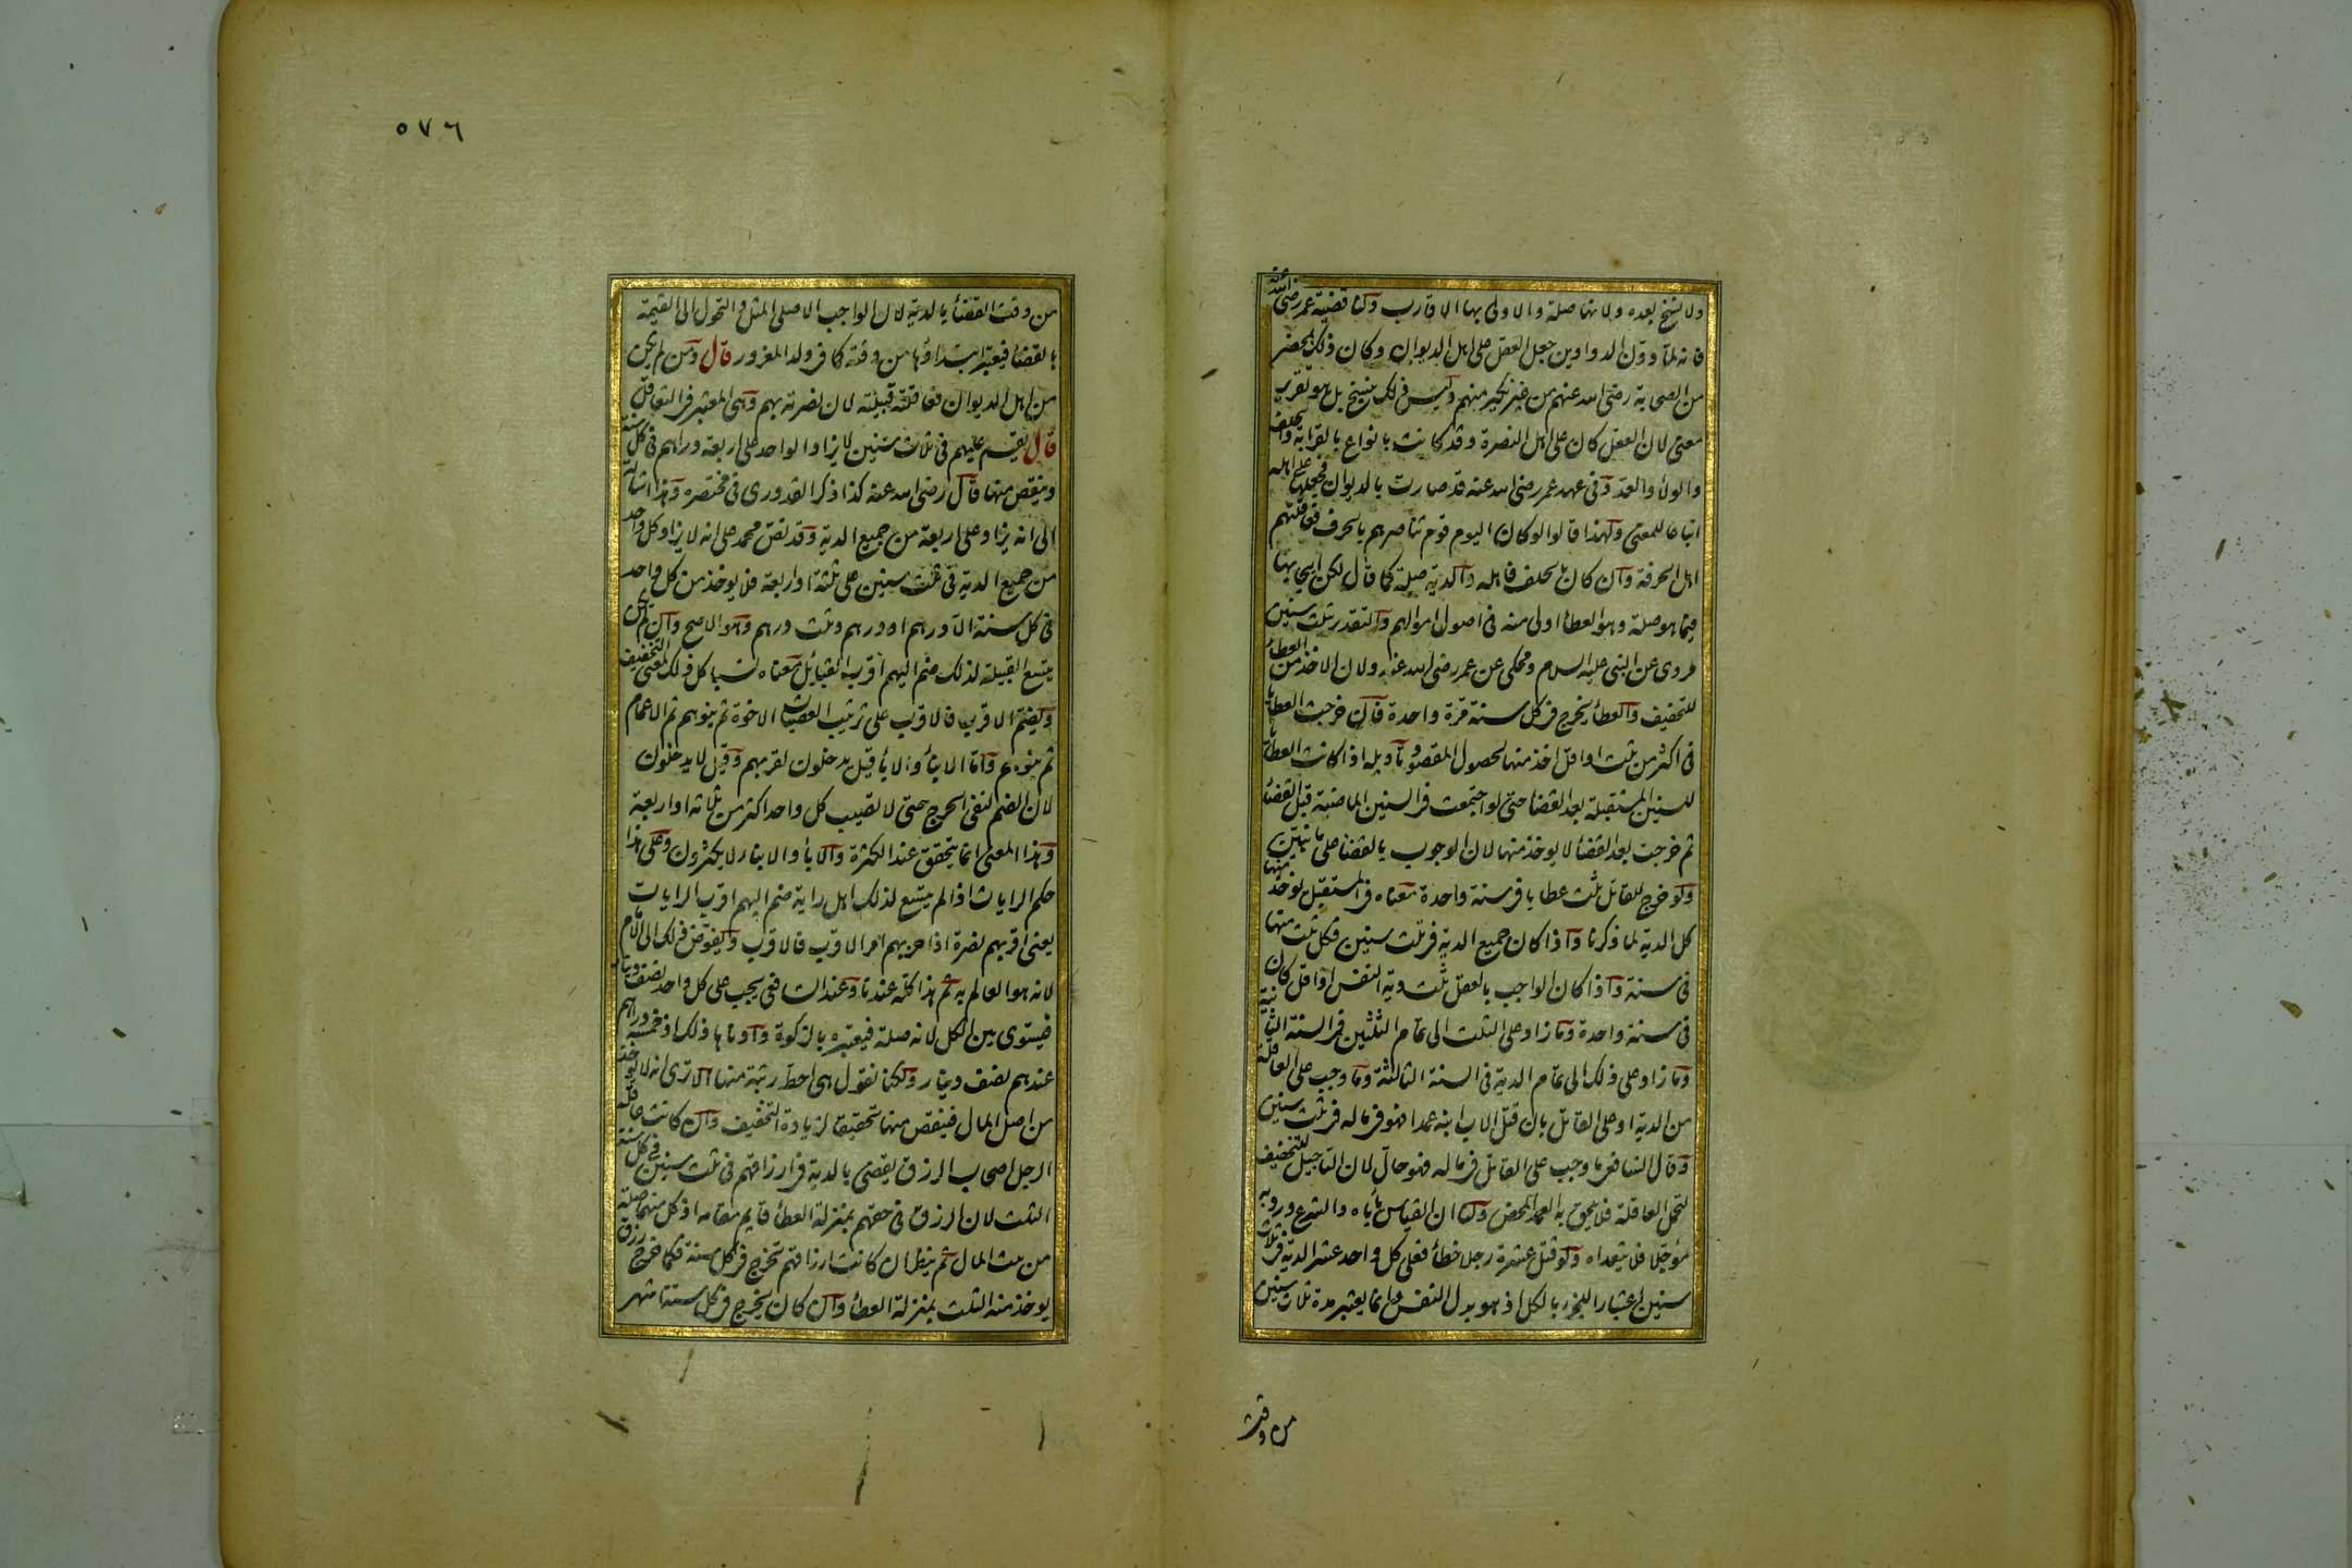 ولا نسخ بعده ولانها صلة والاولى بها الاقارب ولنا قضية عمر رضي الله عنه
فانه لما دون الدواوين جعل العقل على اهل الديوان وكان ذلك بمحضر
من الصحابة رضى الله عنهم من غير نكير منهم وليس ذلك بنسخ بل هو تقرير
معنى لان العقل كان على اهل النصرة وقد كانت بانواع بالقرابة والحلف
والولاء والعد وفى عهد عمر رضى الله عنه قد صارت بالديوان فجعلها على اهله
اتباعا للمعنى ولهذا قالوا لو كان اليوم قوم تناصرهم بالحرف فعاقلتهم
اهل الحرفة وان كان بالحلف فاهله والدية صلة كما قال لكن ايجابها
فيما هو صلة وهو العطاء اولى منه فى اصول اموالهم والتقدير بثلث سنين
مروى عن النبى عليه السلام ومحكى عن عمر رضى الله عنه ولان الاخذ من العطاء
للتخفيف والعطاء يخرج فى كل سنة مرة واحدة فان خرجت العطايا
فى اكثر من ثلث او اقل اخذ منها لحصول المقصود وتاويله اذا كانت العطايا
للسنين المستقبلة بعد القضا حتى لو اجتمعت فى السنين الماضية قبل القضاء
ثم خرجت بعد القضاء لا يوخذ منها لان الوجوب بالقضا على ما نبين
ولو خرج للقاتل ثلث عطايا فى سنة واحدة معناه فى المستقبل يوخذ منها
كل الدية لما ذكرنا واذا كان جميع الدية فى ثلث سنين فكل ثلث منها
فى سنة واذا كان الواجب بالعقل ثلث دية النفس او اقل كان
فى سنة واحدة وما زاد على الثلث الى تمام الثلثين فى السنة الثانية
وما زاد على ذلك الى تمام الدية فى السنة الثالثة وما وجب على العاقلة
من الدية او على القاتل بان قتل الاب ابنه عمدا فهو فى ماله فى ثلث سنين
وقال الشافعى ما وجب على القاتل فى ماله فهو حال لان التاجيل للتخفيف
لتحمل العاقلة فلا يلحق به العمد المحض ولنا ان القياس ياباه والشرع ورد به
مؤجلا فلا يتعداه ولو قتل عشرة رجلا خطاء فعلى كل واحد عشر الدية فى ثلاث
سنين اعتبارا للجزء بالكل اذ هو بدل النفس وانما يعتبر مدة ثلاث سنين
من وقت
٥٧٦
من وقت القضاء بالدية لان الواجب الاصلى المثل والتحول الى القيمة
بالقضا فيعتبر ابتداؤها من وقته كما فى ولد المغرور قال ومن لم يكن
من اهل الديوان فعاقلته قبيلته لان نصرته بهم وهى المعتبر فى التعاقل
قال يقسم عليهم فى ثلاث سنين لا يزاد الواحد على اربعة دراهم فى كل سنة
وينقص منها قال رضى الله عنه كذا ذكر القدورى فى مختصره وهذا اشارة
الى انه يزاد على اربعة من جميع الدية وقد نص محمد على انه لا يزاد كل واحد
من جميع الدية فى ثلث سنين على ثلثة او اربعة فلا يوخذ من كل واحد
فى كل سنة الا درهم او درهم وثلث درهم وهو الاصح وان لم يكن
يتسع القبيلة لذلك ضم اليهم اقرب القبائل معناه نسبا كل ذلك لمعنى التخفيف
ويضم الاقرب فالاقرب على ترتيب العصبات الاخوة ثم بنوهم ثم الاعمام
ثم بنوهم واما الاباء والابناء قيل يدخلون لقربهم وقيل لا يدخلون
لان الضم لنفى الحرج حتى لا يصيب كل واحد اكثر من ثلاثة او اربعة
وهذا المعنى انما يتحقق عند الكثرة والاباء والابناء لا يكثرون وعلى هذا
حكم الرايات اذا لم يتسع لذلك اهل راية ضم اليهم اقرب الرايات
يعنى اقربهم نصرة اذا حزبهم امر الاقرب فالاقرب ويفوض ذلك الى الامام
لانه هو العالم به ثم هذا كله عندنا وعند الشافعى يجب على كل واحد نصف دينار
فيستوى بين الكل لانه صلة فيعتبره بالزكوة وادناها ذلك اذ خمسة دراهم
عندهم نصف دينار ولكنا نقول هى احط رتبة منها الا ترى انه لا يوخذ
من اصل المال فينقص منها تحقيقا لزيادة التخفيف وان كانت عاقلة
الرجل اصحاب الرزق يقضى بالدية فى ارزاقهم فى ثلث سنين فى كل سنة
الثلث لان الرزق فى حقهم بمنزلة العطاء قايم مقامه اذ كل منهما صلة
من بيت المال ثم ينظر ان كانت ارزاقهم تخرج فى كل سنة فكما خرج رزق
يوخذ منه الثلث بمنزلة العطاء وان كان يخرج فى كل ستة اشهر